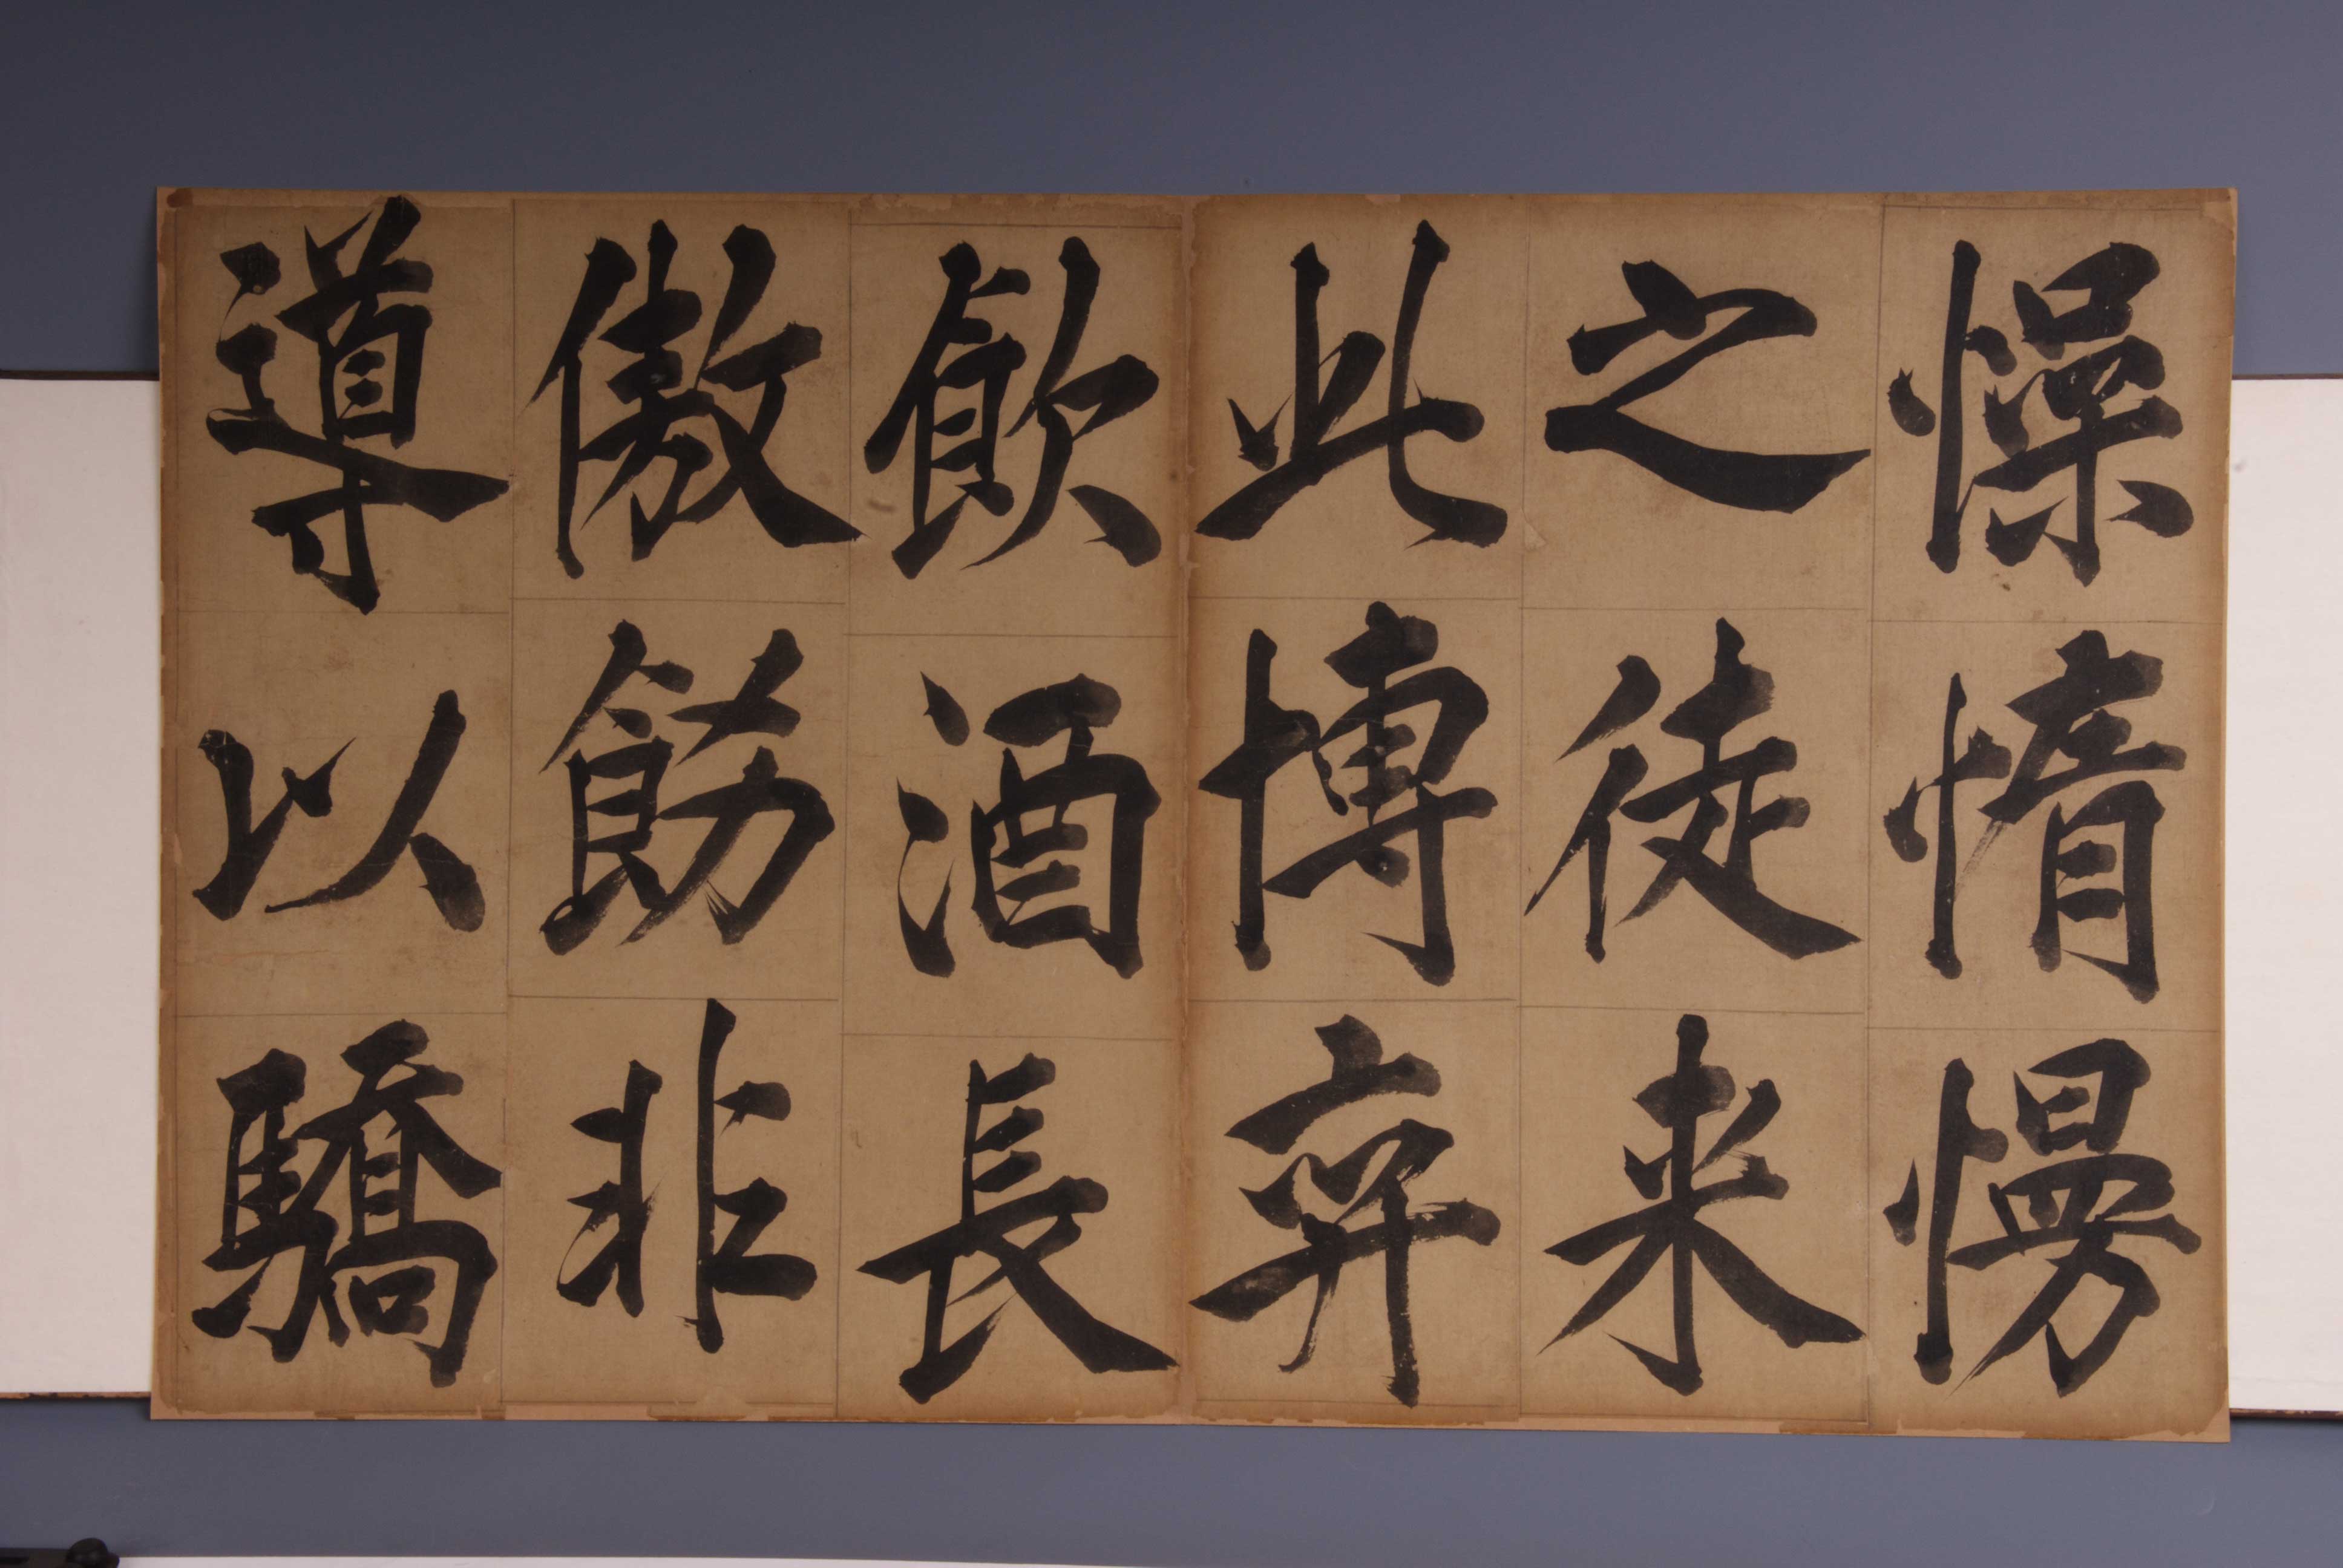 懆惰慢
之徒来
此博弈
飲酒長
傲飭非
導以驕